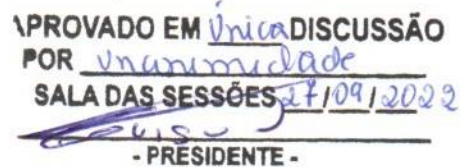 APROVADO EM Única DISCUSSÃO
POR unanimidade
SALA DAS SESSÕES 27/09/2022
- PRESIDENTE -